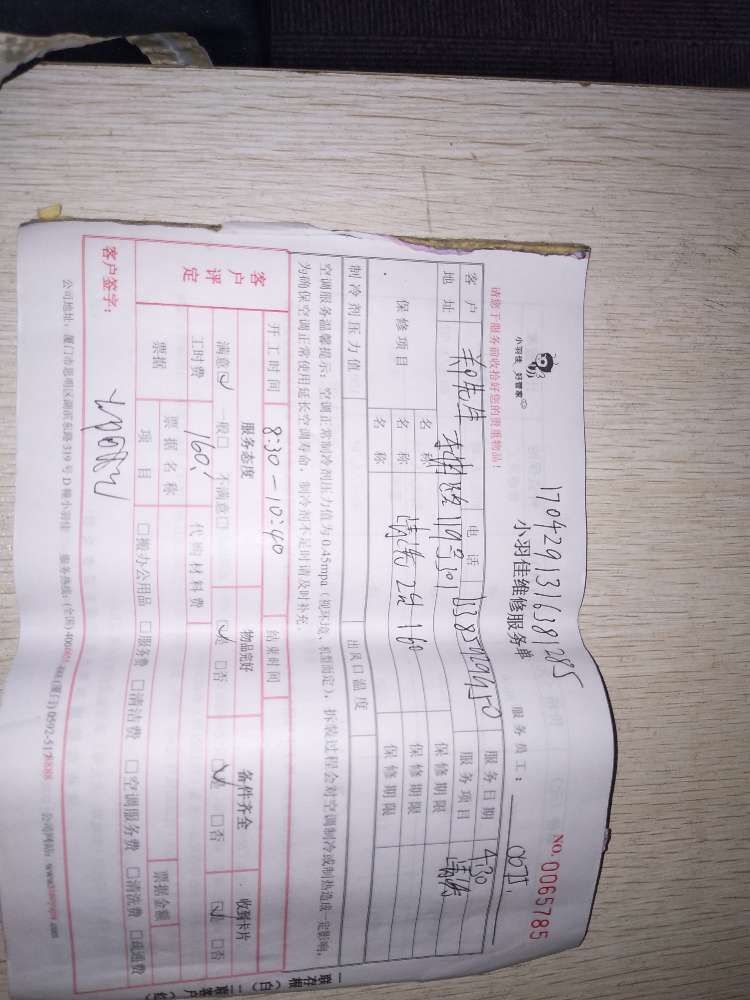 170429131638 1285
小羽佳 好管家
小羽佳维修服务单
NO. 0065785
请您于服务前收拾好您的贵重物品！
服务员工：
客户 郑先生 电话 服务日期 4-30
地址 119号301 服务项目 清洁
保修项目 名称 保修期限
名称 清洁2台160 保修期限
名称 保修期限
制冷剂压力值 出风口温度
空调服务温馨提示：空调正常制冷剂压力值为0.45mpa（视环境、机型而定），拆装过程会对空调制冷或制热造成一定影响，
为确保空调正常使用延长空调寿命，制冷剂不足时请及时补充。
开工时间 8:30-10:40 结束时间
客户评定 服务态度 物品完好 备件齐全 收到卡片
满意☑ 一般□ 不满意□ ☑是 □否 ☑是 □否 ☑是 □否
工时费 160. 代购材料费
票据 票据名称 票据金额
项目 □搬办公用品 □服务费 □清洁费 □空调服务费 □清洗费 □疏通费
客户签字：
公司地址：厦门市思明区湖滨东路319号D幢小羽佳 服务热线：(全国) (厦门) 公司网站：